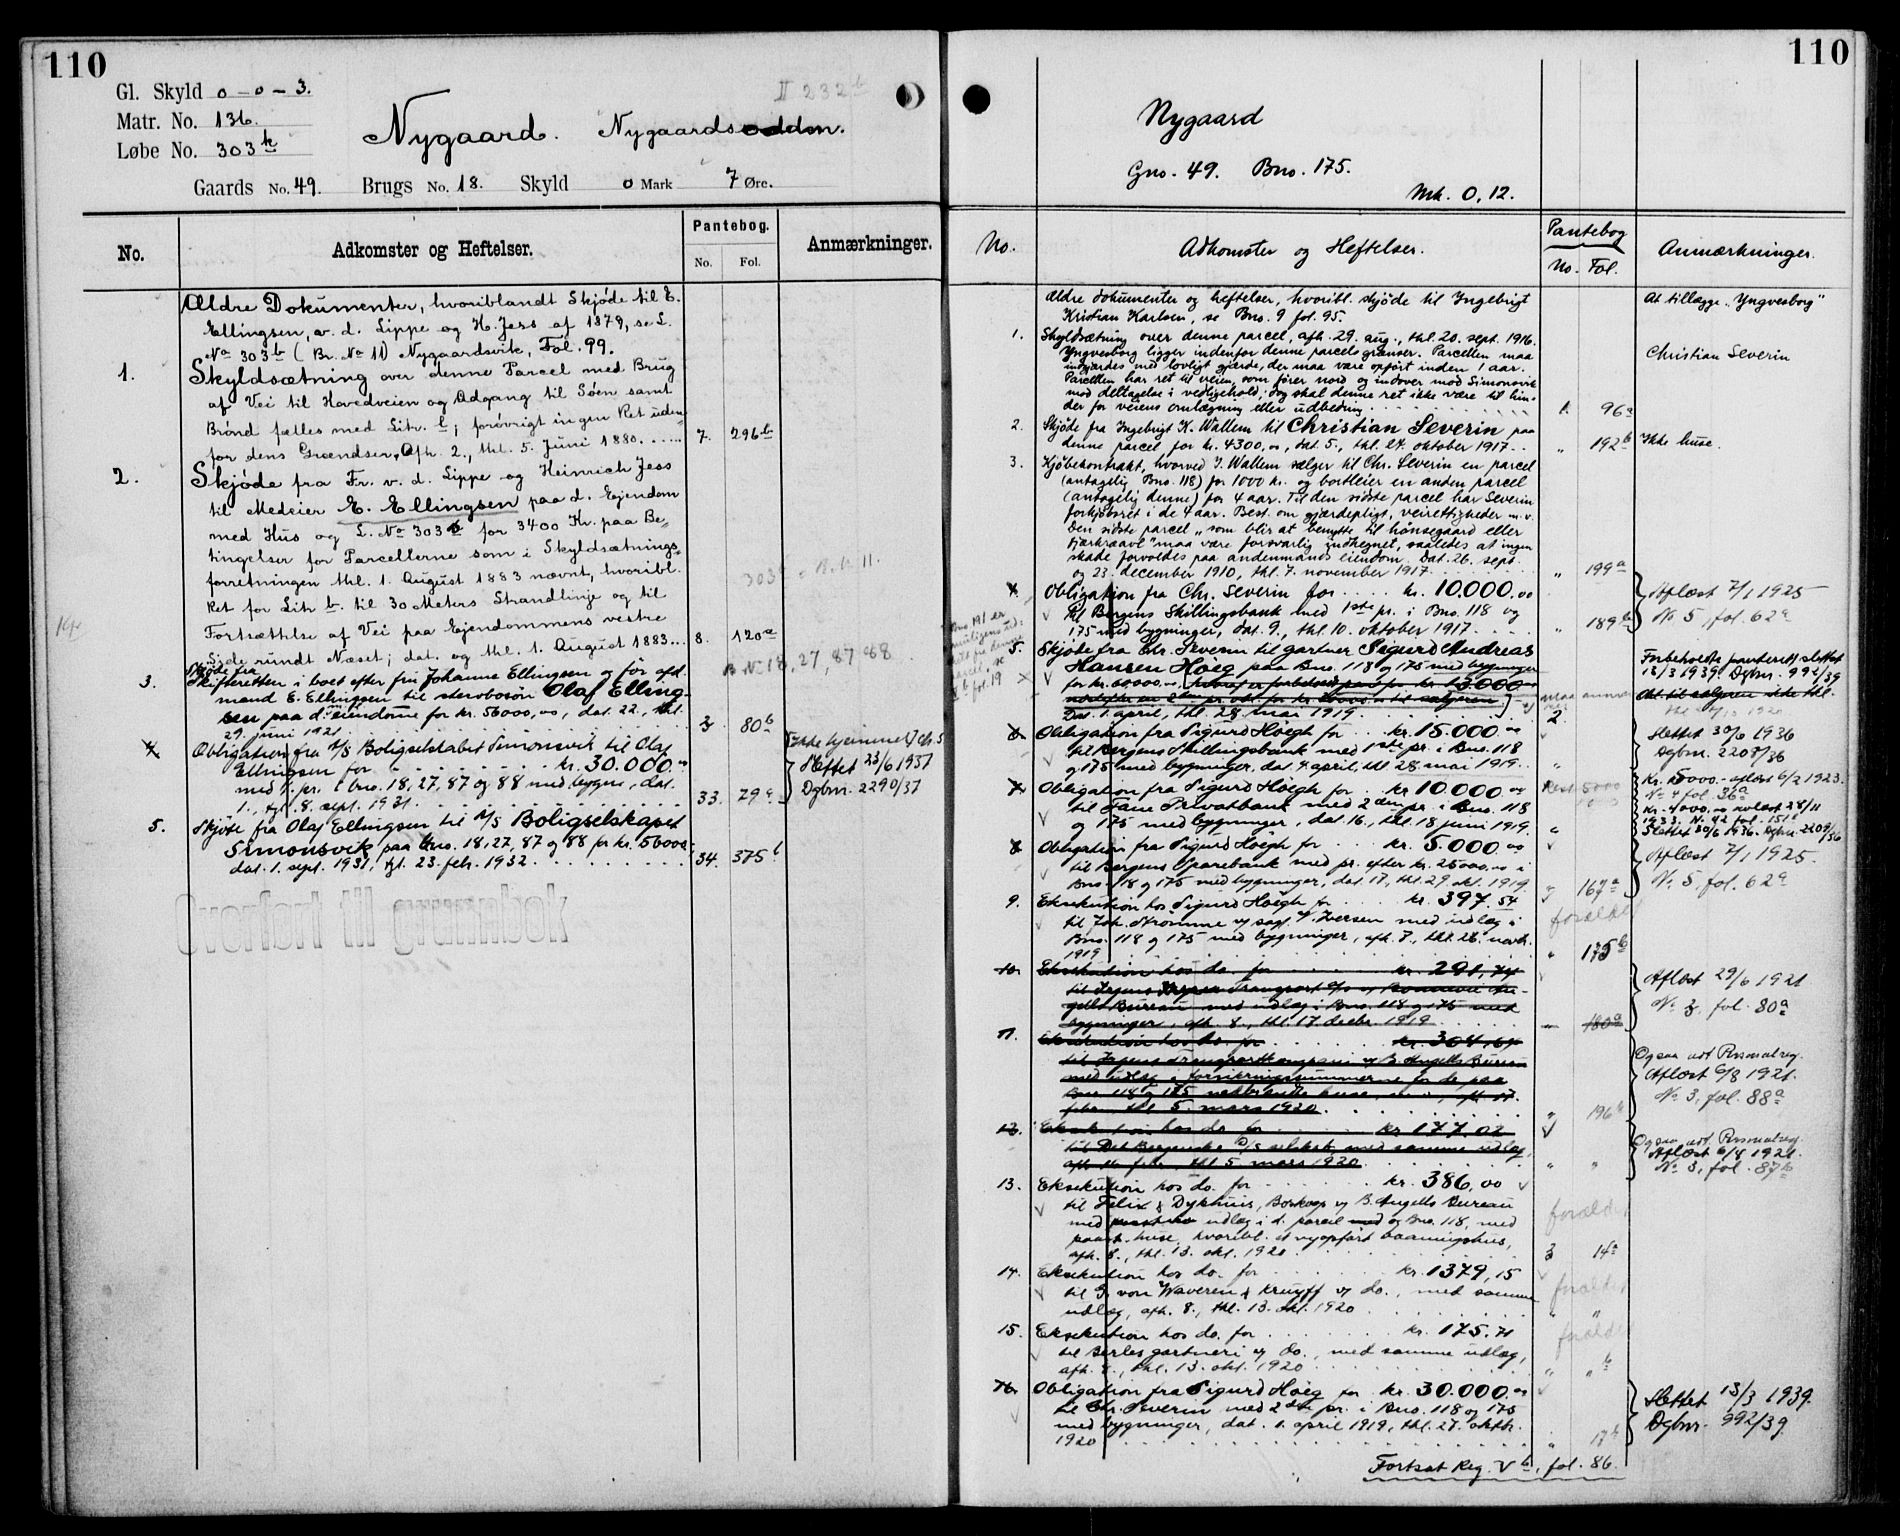 110
Gl. Skyld 0 - 0 - 3.
Matr. No. 136.
Løbe No. 303 k
II 232 b
Nygaard. Nygaardsodden.
Gaards No. 49. Brugs No. 18. Skyld 0 Mark 7 Øre.
No. Adkomster og Heftelser. Pantebog. No. Fol. Anmærkninger.
Ældre Dokumenter, hvoriblandt Skjøde til E.
Ellingsen, v. d. Lippe og H. Jess af 1879, se L.
No 303 b (Br. No 11) Nygaardsvik, Fol. 99.
1. Skyldsætning over denne Parcel med Brug
af Vei til Hovedveien og Adgang til Søen samt
Brønd fælles med Litr. l; forøvrigt ingen Ret uden-
for dens Grændser. Afh. 2., thl. 5. Juni 1880. 7. 296 b
2. Skjøde fra Fr. v. d. Lippe og Heinrich Jess
til Medeier E. Ellingsen paa d. Ejendom
med Hus og L. No 303 b for 3400 Kr. paa Be-
tingelser for Parcellerne som i Skyldsætnings-
forretningen thl. 1. August 1883 nævnt, hvoribl.
Ret for Litr b. til 30 Meters Strandlinje og til
Fortsættelse af Vei paa Ejendommens vestre
Side rundt Næset; dat. og thl. 1. August 1883... 8. 120 a
B No 18, 27, 87, 88
3. Skjøde fra
Skifteretten i boet efter fru Johanne Ellingsen og før afd.
mand E. Ellingsen til stervbosøn Olaf Elling-
sen paa d. eiendome for kr. 56000,00, dat. 22., thl.
29. juni 1921 3 80 b
4. Obligation fra A/S Boligselskabet Simonsvik til Olaf
Ellingsen for kr. 30.000.00
med 1. pr. i bno. 18, 27, 87 og 88 med bygn., dat.
1., tgl. 8. sept. 1931. 33. 79 a
Slettet 23/6 1937
Dgbnr. 2290/37
5. Skjøte fra Olaf Ellingsen til A/S Boligselskapet
Simonsvik paa bno. 18, 27, 87 og 88 for kr. 56000.-
dat. 1. sept. 1931, tgl. 23. febr. 1932. 34. 375 b
Overført til grunnbok
110
Nygaard
Gno. 49. Bno. 175.
Mk. 0,12.
No. Adkomster og Heftelser. Pantebog No. Fol. Anmærkninger.
Ældre dokumenter og heftelser, hvoribl. skjøde til Ingebrigt
Kristian Karlsen, se Bno. 9 fol. 95.
At tillægge „Yngvesborg"
1. Skyldsætning over denne parcel, afh. 29. aug., thl. 20. sept. 1916.
Yngvesborg ligger indenfor denne parcels grænser. Parcellen maa
indgjærdes med lovligt gjærde, der maa være opført inden 1 aar.
Parcellen har ret til veien, som fører nord og indover mod Simonsvik
mod deltagelse i vedligehold; dog skal denne ret ikke være til hin-
der for veiens omlægning eller udbedring 1. 96 a
Christian Severin
2. Skjøde fra Ingebrigt K. Wallem til Christian Severin paa
denne parcel for kr. 4300,00, dat. 5., thl. 24. oktober 1917. „ 192 b Ikke huse.
3. Kjøbekontrakt, hvorved I. Wallem sælger til Chr. Severin en parcel
(antagelig Bno. 118) for 1000 kr. og bortleier en anden parcel
(antagelig denne) for 4 aar. Til den sidste parcel har Severin
forkjøbsret i de 4 aar. Best. om gjærdepligt, veirettigheder m. v.
Den sidste parcel „som blir at benytte til hønsegaard eller
fjærkræavl" maa være forsvarlig indhegnet, saaledes at ingen
skade forvoldes paa andenmands eiendom. Dat. 26. sept.
og 23. december 1910, thl. 7. november 1917. „ 199 a
4. Obligation fra Chr. Severin for kr. 10.000.00
til Bergens Skillingsbank med 1ste pr. i Bno. 118 og
175 med bygninger, dat. 9., thl. 10. oktober 1917. „ 189 b
Aflæst 7/1 1925
No 5, fol. 62 a
5. Skjøde fra Chr. Severin til gartner Sigurd Andreas
Hansen Høeg paa Bno. 118 og 175 med bygninger
Dat. 1. april, thl. 28. mai 1919. 2
Forbeholdte panteret slettet
13/3 1939. Dgbnr. 992/39
6. Obligation fra Sigurd Høegh for kr. 15.000.00
til Bergens Skillingsbank med 1ste pr. i Bno. 118
og 175 med bygninger, dat. 4. april, thl. 28. mai 1919. „
Slettet 30/6 1936
Dgbnr. 2208/36
7. Obligation fra Sigurd Høegh for kr. 10.000.00
til Fane Privatbank med 2den pr. i Bno. 118
og 175 med bygninger, dat. 16., thl. 18. juni 1919. „
Kr. 5000.- aflæst 6/2 1923.
No 4 fol. 36 a
Slettet 30/6 1936. Dgbnr. 2209/36
8. Obligation fra Sigurd Høegh for kr. 5.000.00
til Bergens Sparebank med pr. efter kr. 25000,00 i
Bno. 118 og 175 med bygninger, dat. 17., thl. 29. okt. 1919 „ 167 a
Aflæst 7/1 1925.
No 5, fol. 62 a
9. Eksekution hos Sigurd Høegh for kr. 397.54
til Joh. Strømme og sagf. Iversen med udlæg i
Bno. 118 og 175 med bygninger, afh. 7., thl. 26. novbr.
1919 „ 175 b
forældet
10. Eksekution hos do. for kr. 291,74
bygninger, afh. 8., thl. 17. decbr. 1919 180 a
Aflæst 29/6 1921
No 3, fol. 80 a
11. Eksekution hos do. for kr. 304,64
febr., thl. 5. mars 1920. „ 196 b
Ogsaa udt. Personalreg.
Aflæst 6/8 1921.
No 3, fol. 88 a
12. Eksekution hos do. for kr. 177.02
til Det Bergenske D/S selskab, med samme udlæg,
febr., thl. 5. mars 1920. „ „
Ogsaa udt. Personalreg.
Aflæst 6/8 1921.
No 3, fol. 87 b
13. Eksekution hos do. for kr. 386,00
til Felix & Dykhuis, Boskoop og B. Angells Bureau
med udlæg i d. parcel og Bno. 118, med
paast. huse, hvoribl. et nyopført vaaningshus,
afh. 8., thl. 13. okt. 1920. 3 14 a
forældet
14. Eksekution hos do. for kr. 1379,15
til G. von Waveren & Kruyff og do., med samme
udlæg, afh. 8., thl. 13. okt. 1920 „ „
forældet
15. Eksekution hos do. for kr. 175.71
til Berles gartneri og do., med samme udlæg,
afh. 8., thl. 13. okt. 1920 „ „ b
forældet
16. Obligation fra Sigurd Høeg for kr. 30.000.00
til Chr. Severin med 2den pr. i Bno. 118 og 175
med bygninger, dat. 1. april 1919, thl. 27. oktbr.
1920 „ 17 b
Slettet 13/3 1939.
Dgbnr. 992/39
Fortsat Reg. V b, fol. 86.